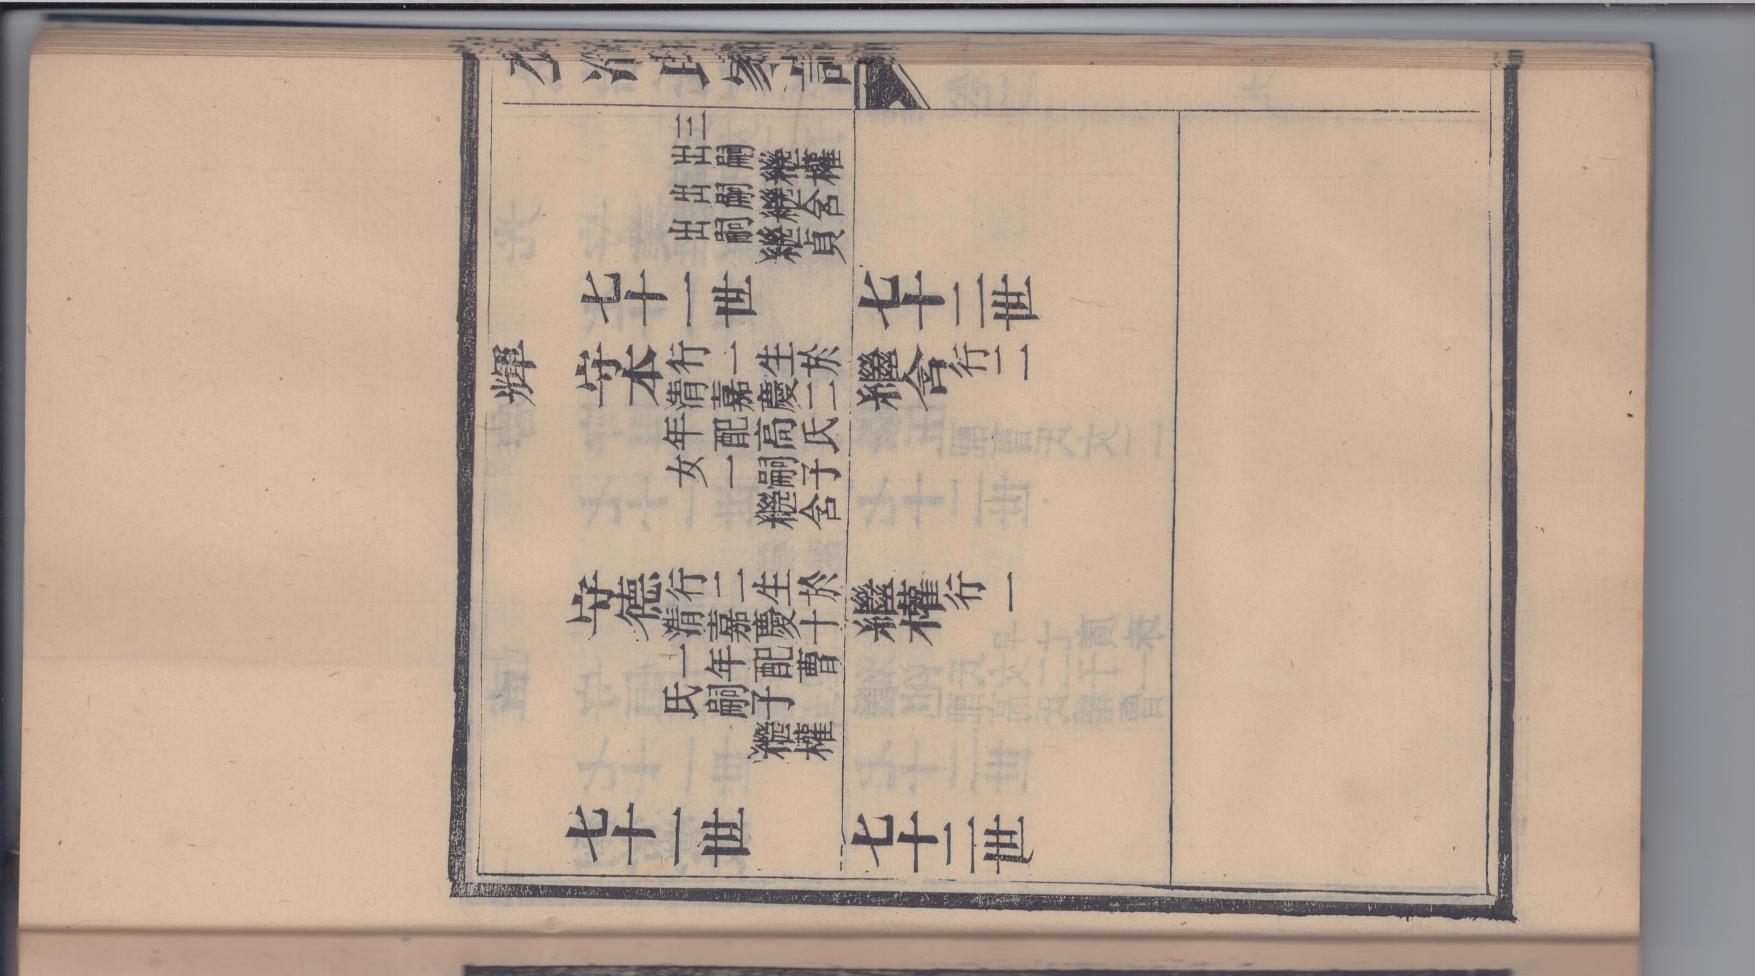 三
出嗣繼權
出嗣繼含
出嗣繼貞
七十一世
輝
守本
行一生於
清嘉慶二
年配高氏
女一嗣子
繼含
守德
行二生於
清嘉慶十
一年配曹
氏嗣子
繼權
七十一世
七十二世
繼含
行二
繼權
行一
七十二世